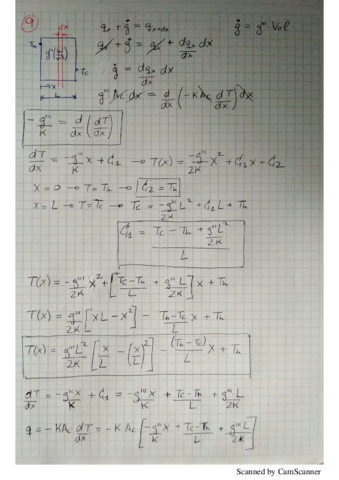 9
dx
q_x + q̇ = q_{x+dx}    q̇ = q''' Vol
T_h    q_x + q̇ = q_x + dq_x/dx dx
q'''
T_c    q̇ = dq_x/dx dx
x
L    q''' Ac dx = d/dx (-K Ac dT/dx) dx
-q'''/K = d/dx (dT/dx)
dT/dx = -q'''/K x + C1 → T(x) = -q'''/2K x² + C1 x + C2
x = 0 → T = Th → C2 = Th
x = L → T = Tc → Tc = -q'''/2K L² + C1 L + Th
C1 = (Tc - Th + q''' L²/2K)/L
T(x) = -q'''/2K x² + [(Tc - Th)/L + q''' L/2K] x + Th
T(x) = q'''/2K [xL - x²] - (Th - Tc)/L x + Th
T(x) = q''' L²/2K [x/L - (x/L)²] - (Th - Tc)/L x + Th
dT/dx = -q''' x/K + C1 = -q''' x/K + (Tc - Th)/L + q''' L/2K
q = -K Ac dT/dx = -K Ac [-q'''/K x + (Tc - Th)/L + q''' L/2K]
Scanned by CamScanner